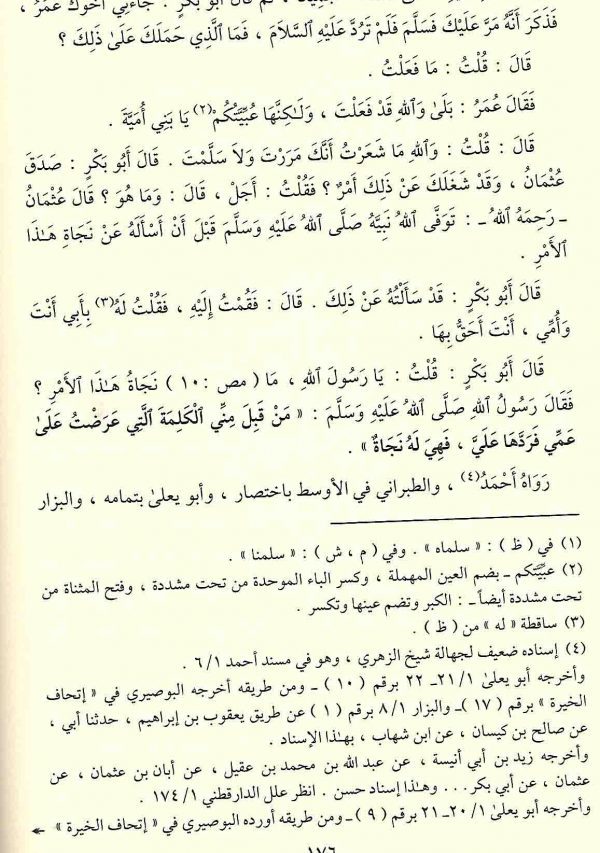 ثم قال أبو بكر : جاءني أخوك عمر ،
فَذَكَرَ أَنَّهُ مَرَّ عَلَيْكَ فَسَلَّمَ فَلَمْ تَرُدَّ عَلَيْهِ ٱلسَّلاَمَ ، فَمَا ٱلَّذِي حَمَلَكَ عَلَىٰ ذَلِكَ ؟
قَالَ : قُلْتُ : مَا فَعَلْتُ .
فَقَالَ عُمَرُ : بَلَىٰ وَٱللهِ قَدْ فَعَلْتَ ، وَلَـٰكِنَّهَا عُبِّيَّتُكُمْ(٢) يَا بَنِي أُمَيَّةَ .
قَالَ : قُلْتُ : وَٱللهِ مَا شَعَرْتُ أَنَّكَ مَرَرْتَ وَلاَ سَلَّمْتَ . قَالَ أَبُو بَكْرٍ : صَدَقَ
عُثْمَانُ ، وَقَدْ شَغَلَكَ عَنْ ذَلِكَ أَمْرٌ ؟ فَقُلْتُ : أَجَلْ ، قَالَ : وَمَا هُوَ ؟ قَالَ عُثْمَانُ
ـ رَحِمَهُ ٱللهُ ـ : تَوَفَّى ٱللهُ نَبِيَّهُ صَلَّى ٱللهُ عَلَيْهِ وَسَلَّمَ قَبْلَ أَنْ أَسْأَلَهُ عَنْ نَجَاةِ هَـٰذَا
ٱلأَمْرِ .
قَالَ أَبُو بَكْرٍ : قَدْ سَأَلْتُهُ عَنْ ذَلِكَ . قَالَ : فَقُمْتُ إِلَيْهِ ، فَقُلْتُ لَهُ(٣) بِأَبِي أَنْتَ
وَأُمِّي ، أَنْتَ أَحَقُّ بِهَا .
قَالَ أَبُو بَكْرٍ : قُلْتُ : يَا رَسُولَ ٱللهِ ، مَا ( مص : ١٠ ) نَجَاةُ هَـٰذَا ٱلأَمْرِ ؟
فَقَالَ رَسُولُ ٱللهِ صَلَّى ٱللهُ عَلَيْهِ وَسَلَّمَ : « مَنْ قَبِلَ مِنِّي ٱلْكَلِمَةَ ٱلَّتِي عَرَضْتُ عَلَىٰ
عَمِّي فَرَدَّهَا عَلَيَّ ، فَهِيَ لَهُ نَجَاةٌ » .
رَوَاهُ أَحْمَدُ(٤) ، والطبراني في الأوسط باختصار ، وأبو يعلىٰ بتمامه ، والبزار
(١) في ( ظ ) : « سلماه » . وفي ( م ، ش ) : « سلمنا » .
(٢) عبِّيَّتكم ـ بضم العين المهملة ، وكسر الباء الموحدة من تحت مشددة ، وفتح المثناة من
تحت مشددة أيضاً ـ : الكبر وتضم عينها وتكسر .
(٣) ساقطة « له » من ( ظ ) .
(٤) إسناده ضعيف لجهالة شيخ الزهري ، وهو في مسند أحمد ٦/١ .
وأخرجه أبو يعلىٰ ٢١/١ـ ٢٢ برقم ( ١٠ ) ـ ومن طريقه أخرجه البوصيري في « إتحاف
الخيرة » برقم ( ١٧ ) ـ والبزار ٨/١ برقم ( ١ ) عن طريق يعقوب بن إبراهيم ، حدثنا أبي ،
عن صالح بن كيسان ، عن ابن شهاب ، بهـٰذا الإسناد .
وأخرجه زيد بن أبي أنيسة ، عن عبد الله بن محمد بن عقيل ، عن أبان بن عثمان ، عن
عثمان ، عن أبي بكر . . . وهـٰذا إسناد حسن . انظر علل الدارقطني ١٧٤/١ .
وأخرجه أبو يعلىٰ ٢٠/١ـ ٢١ برقم ( ٩ ) ـ ومن طريقه أورده البوصيري في « إتحاف الخيرة »
١٧٦